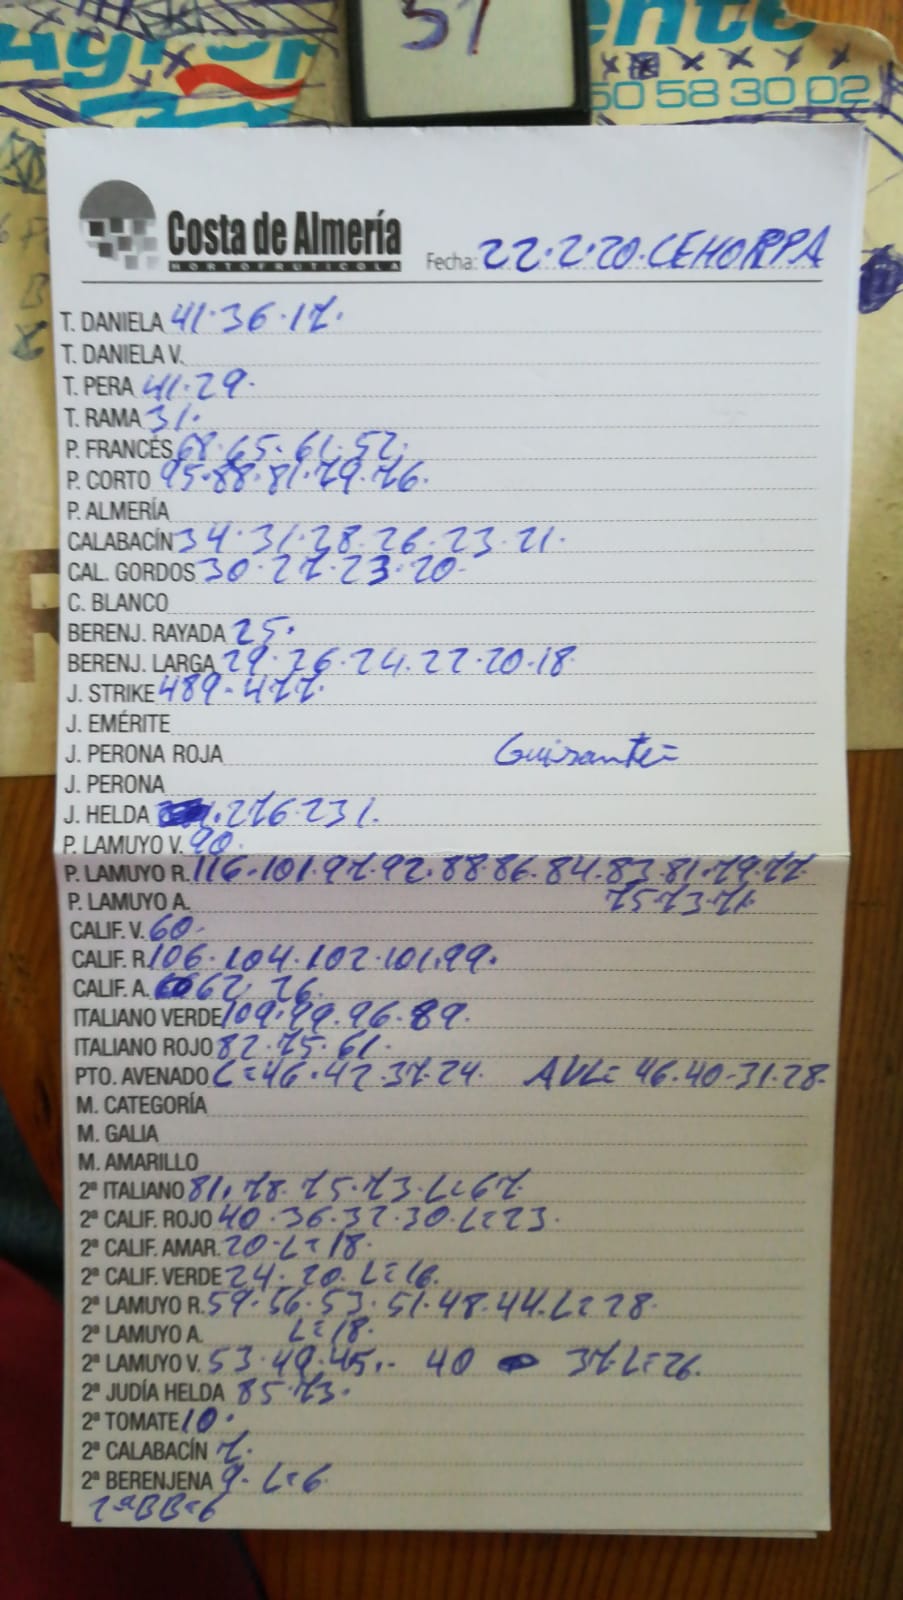 51
50 58 30 02
Costa de Almería
HORTOFRUTICOLA
Fecha: 22.2.20.CEHORPA
T. DANIELA 41.36.17.
T. DANIELA V.
T. PERA 41.29.
T. RAMA 31.
P. FRANCÉS 68.65.61.52.
P. CORTO 95.88.81.79.76.
P. ALMERÍA
CALABACÍN 34.31.28.26.23.21.
CAL. GORDOS 30.27.23.20.
C. BLANCO
BERENJ. RAYADA 25.
BERENJ. LARGA 29.26.24.22.20.18
J. STRIKE 489-477.
J. EMÉRITE
J. PERONA ROJA Guisante=
J. PERONA
J. HELDA .276.231.
P. LAMUYO V. 90.
P. LAMUYO R. 116.101.97.92.88.86.84.83.81.79.77
P. LAMUYO A. 75.73.71.
CALIF. V. 60.
CALIF. R. 106.104.102.101.99.
CALIF. A. 62. 26.
ITALIANO VERDE 109.99.96.89.
ITALIANO ROJO 82.75.61.
PTO. AVENADO L=46.42.37.24. AVL= 46.40-31.28.
M. CATEGORÍA
M. GALIA
M. AMARILLO
2ª ITALIANO 81.78.75.73.L=67.
2ª CALIF. ROJO 40.36.32.30.L=23.
2ª CALIF. AMAR. 20.L=18.
2ª CALIF. VERDE 24.20.L=16.
2ª LAMUYO R. 59.56.53.51.48.44.L=28.
2ª LAMUYO A. L=18.
2ª LAMUYO V. 53.49.45.- 40 37.L=26.
2ª JUDÍA HELDA 85.73.
2ª TOMATE 10.
2ª CALABACÍN 7.
2ª BERENJENA 9-L=6
2ªBB=6